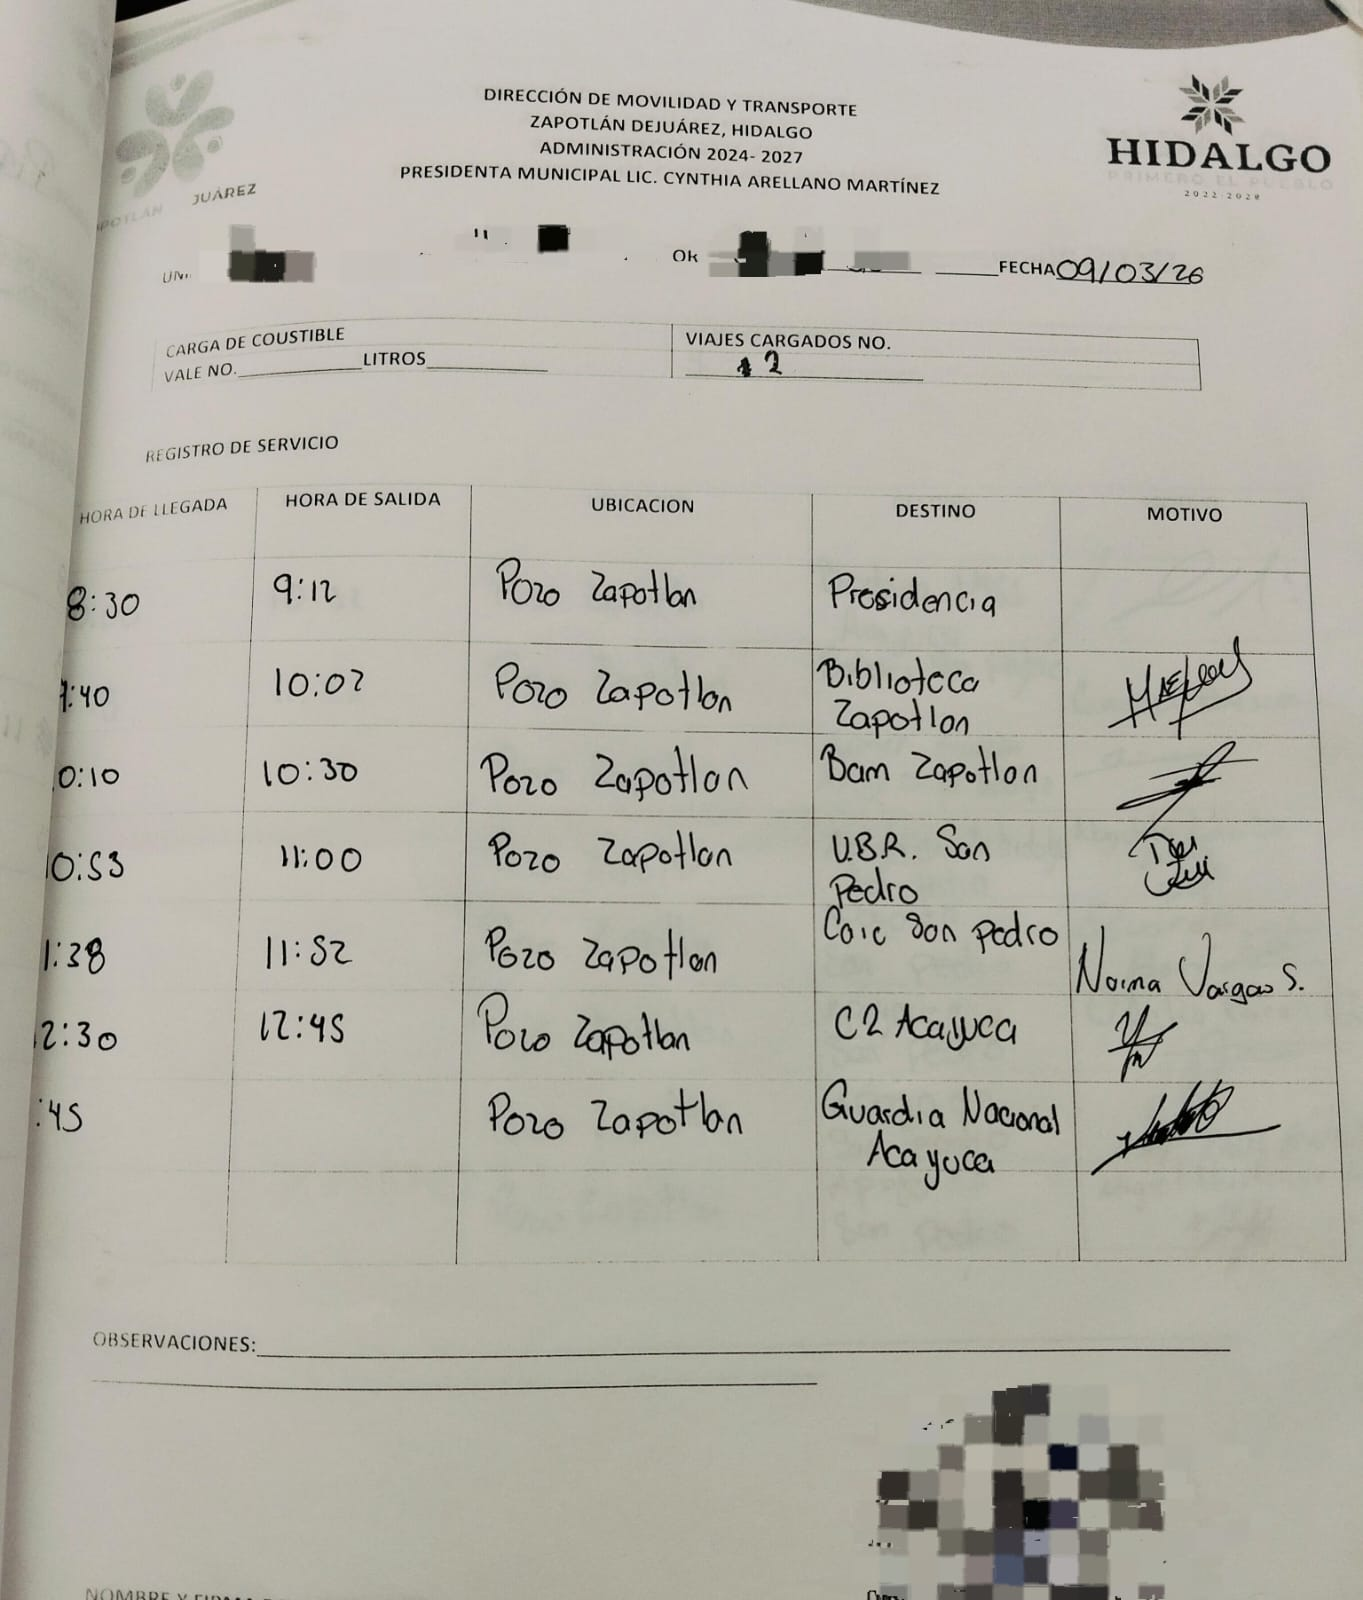 DIRECCIÓN DE MOVILIDAD Y TRANSPORTE
ZAPOTLÁN DEJUÁREZ, HIDALGO
ADMINISTRACIÓN 2024- 2027
PRESIDENTA MUNICIPAL LIC. CYNTHIA ARELLANO MARTÍNEZ
JUÁREZ
HIDALGO
PRIMERO EL PUEBLO
2022-2028
FECHA 09/03/26
CARGA DE COUSTIBLE
VALE NO.____________LITROS____________
VIAJES CARGADOS NO.
2
REGISTRO DE SERVICIO
HORA DE LLEGADA HORA DE SALIDA UBICACION DESTINO MOTIVO
8:30 9:12 Pozo Zapotlan Presidencia
:40 10:02 Pozo Zapotlan Biblioteca
Zapotlan
0:10 10:30 Pozo Zapotlan Bam Zapotlan
0:53 11:00 Pozo Zapotlan U.B.R. San
Pedro
1:38 11:52 Pozo Zapotlan Caic San pedro Norma Vargas S.
2:30 12:45 Pozo Zapotlan C2 Acayuca
:45 Pozo Zapotlan Guardia Nacional
Acayuca
OBSERVACIONES:
NOMBRE Y FIRMA